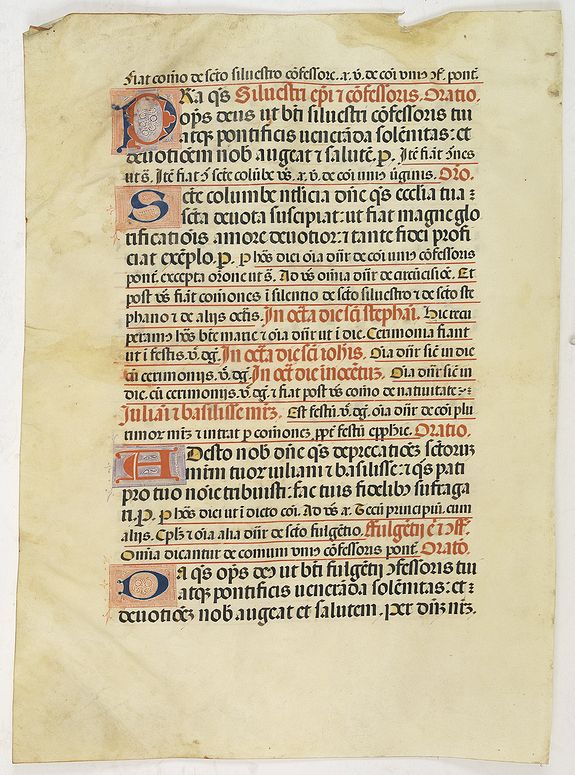 fiat com̄o de sc̄to siluestro cōfessore. a. v̄. de coī vniꝰ ↄf. pont.
DRa qs̄ Siluestri epī ⁊ cōfessoris. Oratio.
ops̄ deus ut bt̄i siluestri cōfessoris tui
atqꝫ pontificis uenerāda solēnitas: et
deuotiōem nob̄ augeat ⁊ salutē. p̄. Itē fiāt ōnes
ut s̄. Itē fiat ↄ̄ sc̄te colūbe vs̄. a. v̄. de coī vniꝰ v̄ginis. Or̄o.
Scte columbe ītercia dn̄e qs̄ ecclīa tua :
sc̄tā deuota suscipiat: ut fiat magne glo
rificatiōis amore deuotior: ⁊ tante fidei profi
ciat exēplo. p̄. p hōs dici oīa dn̄r de coī vniꝰ cōfessoris
pont. excepta orōne ut s̄. Ad vs̄ omīa dn̄r de circūcisiōe. Et
post vs̄ fiāt com̄ones ī silentio de sc̄to siluestro ⁊ de sc̄to ste
phano ⁊ de alijs oct̄is. In octa die sc̄i stephāi. Hic recu
peram̄ hōs bt̄e marie ⁊ oīa dn̄r ut ī die. Cerimonia fiant
ut ī festis. v̄. dḡ. In octa die sc̄i ioh̄is. Oīa dn̄r sic̄ in die
cū cerimonijs. v̄. dḡ. In oct̄ die inocētuꝫ. Oīa dn̄r sic̄ in
die. cū cerimonijs. v̄. dḡ. ⁊ fiat post vs̄ com̄o de natiuitate
Juliani ⁊ basilisse mr̄ꝫ. Est festū. v̄. dḡ. oīa dn̄r de coī plu
rimor mr̄ꝫ ⁊ intrat p com̄ones. ꝓpt̄ festū epyph̄ie. Oratio.
ADesto nob̄ dn̄e qs̄ deprecatiōeꝫ sctoruꝫ
mr̄m tuor iuliani ⁊ basilisse: ⁊ qs̄ pati
pro tuo noīe tribuisti: fac tuis fidelibꝰ suffraga
ri. p̄. p hōs dici ut ī dicto coī. Ad vs̄ a. Tecū principiū. cum
alijs. Cpl̄ꝫ ⁊ oīa alia dn̄r de sc̄to fulgētio. Fulgētij ē ⁊ ↄff.
Omīa dicantur de comuni vniꝰ cōfessoris pont̄. Oratō.
DA qs̄ opš deꝰ ut bt̄i fulgētij ↄfessoris tui
atqꝫ pontificis uenerāda solēnitas: et :
deuotiōeꝫ nob̄ augeat et salutem. per dn̄ꝫ nr̄ꝫ.